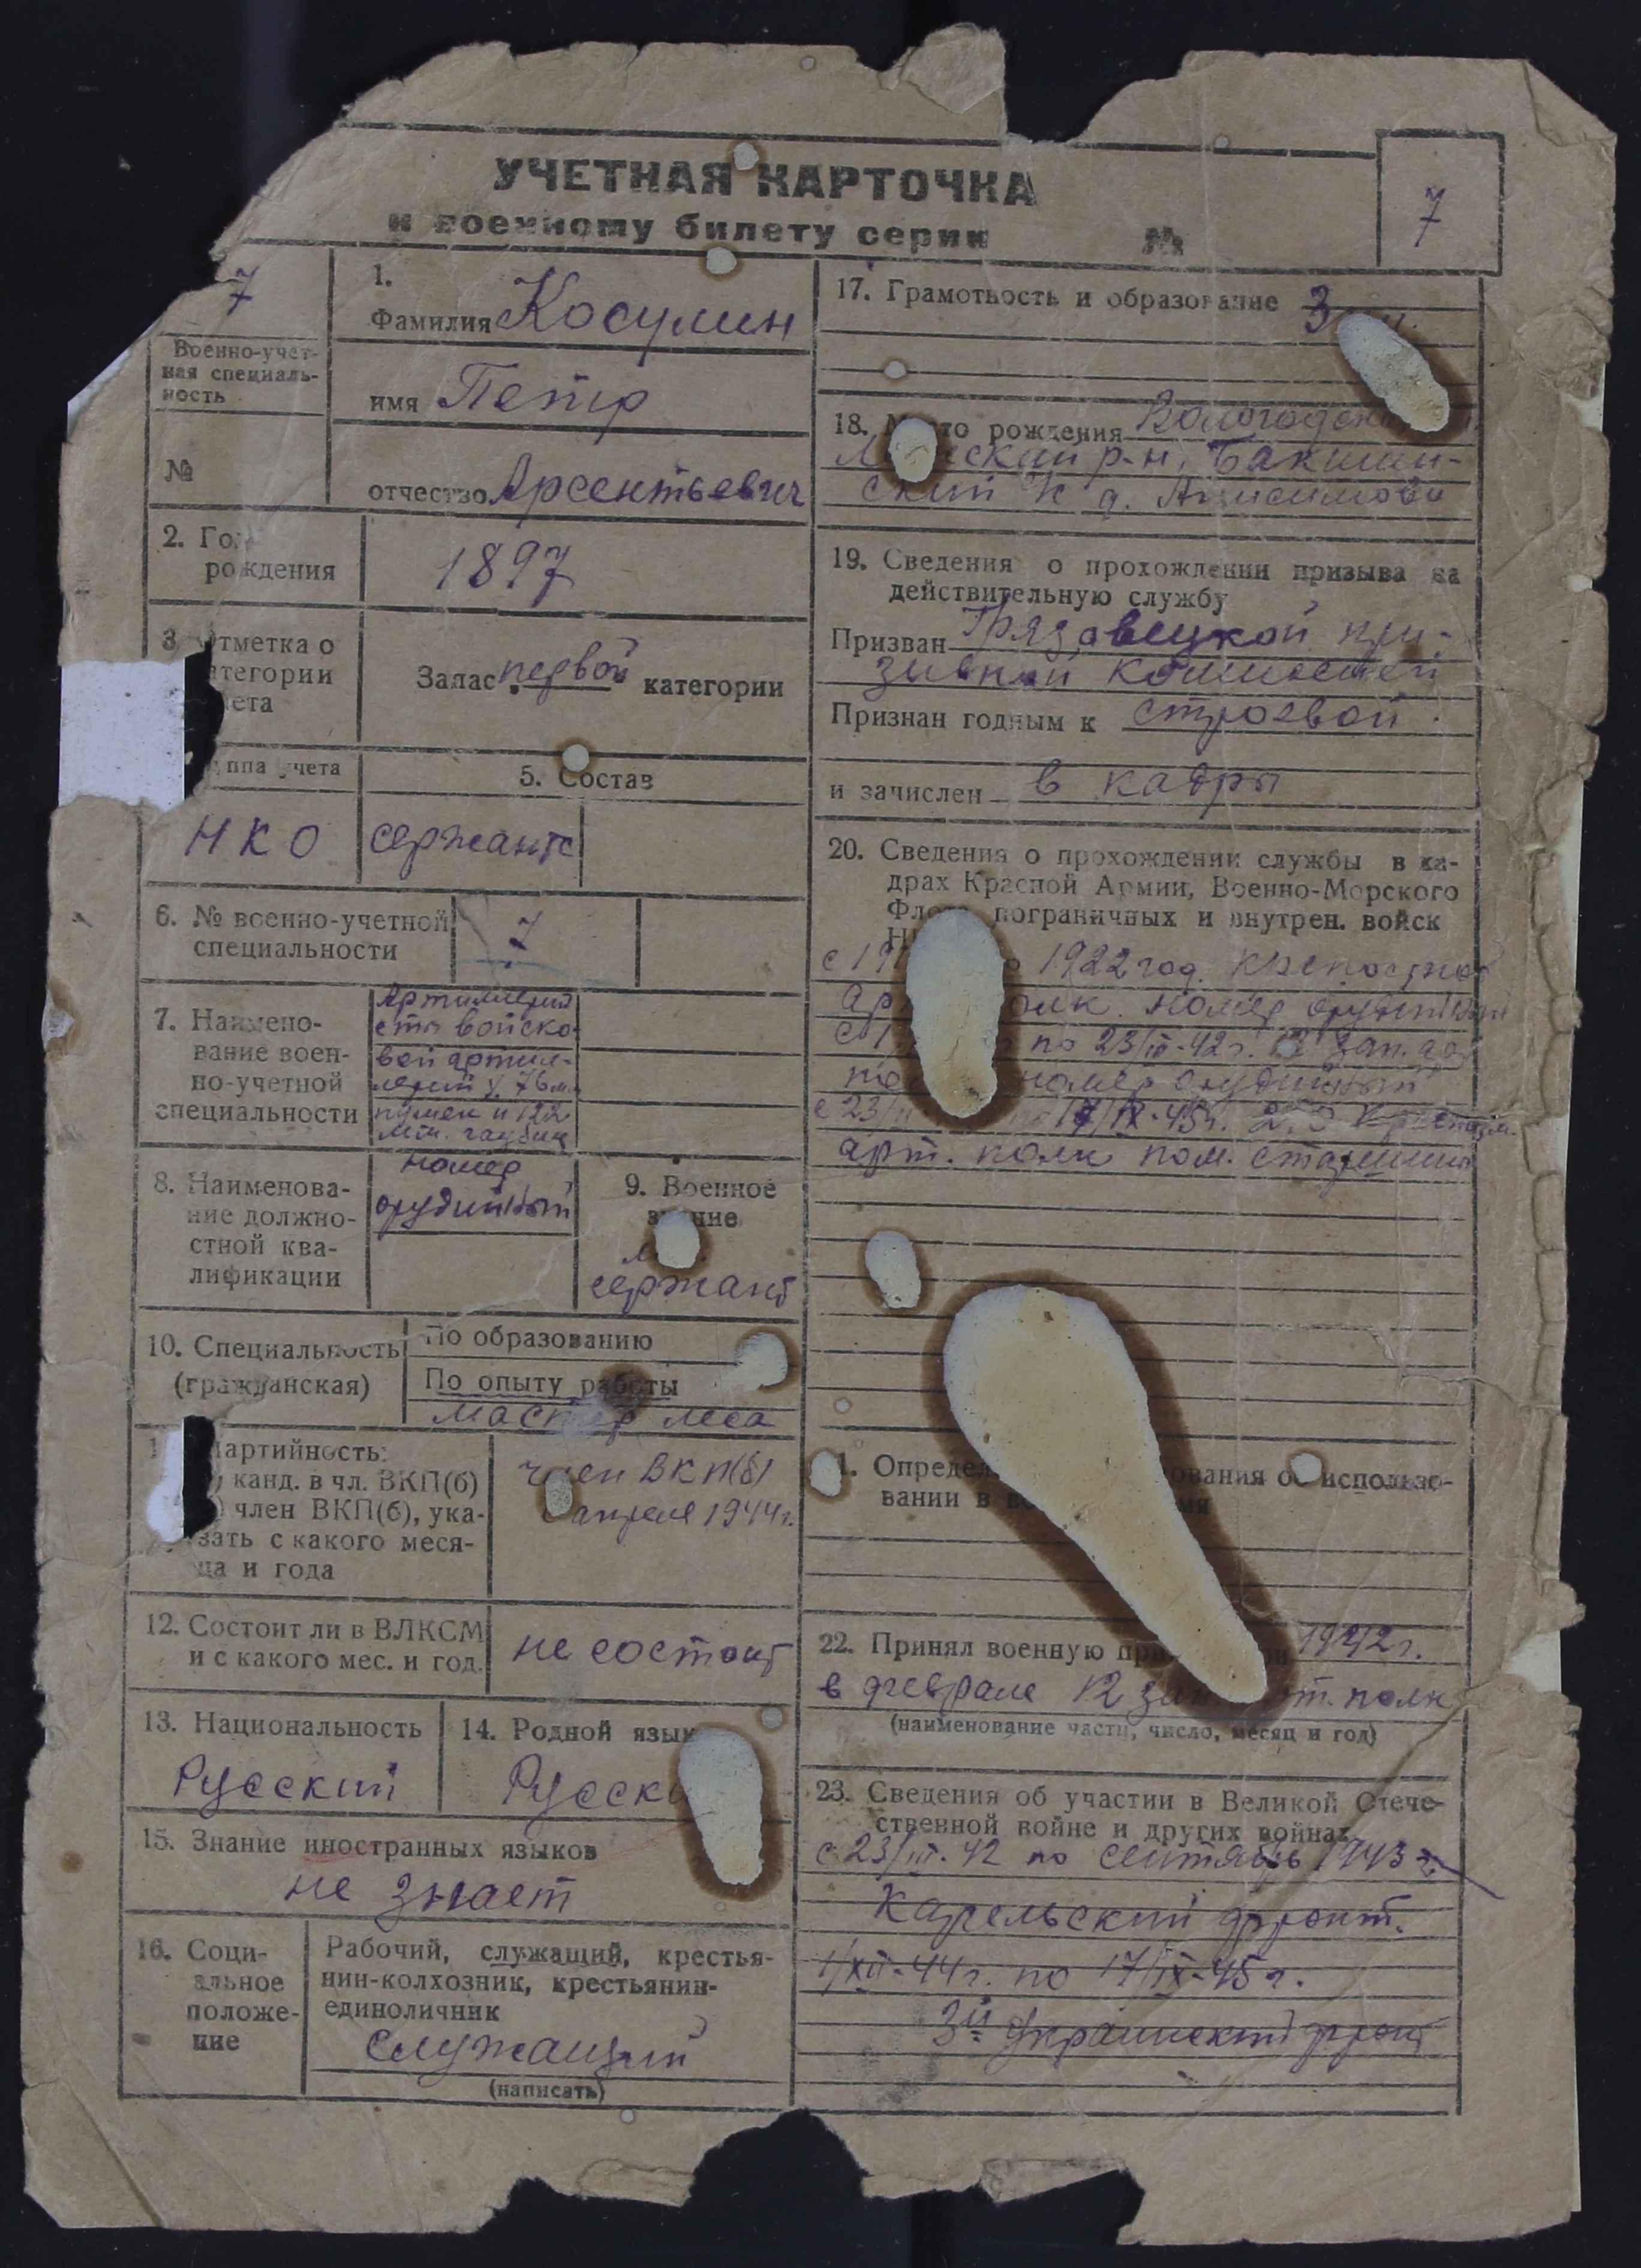 УЧЕТНАЯ КАРТОЧКА
к военному билету серии №
7
7
Военно-учет-
ная специаль-
ность
№
1.
Фамилия Косулин
имя Петр
отчество Арсентьевич
2. Год
рождения
1897
3. Отметка о
категории
учета
Запас первой категории
группа учета
5. Состав
НКО
сержантс
6. № военно-учетной
специальности
7
7. Наимено-
вание воен-
но-учетной
специальности
Артиллерий
ста войско
вой артил-
лерий 76 м.
пушек и 122
мм. гаубиц
8. Наименова-
ние должно-
стной ква-
лификации
номер
орудийный
9. Военное
звание
сержант
10. Специальность
(гражданская)
По образованию
По опыту работы
мастер леса
Партийность:
канд. в чл. ВКП(б)
член ВКП(б), ука-
зать с какого меся-
ца и года
член ВКП(б)
с апреля 1944 г.
12. Состоит ли в ВЛКСМ
и с какого мес. и год.
не состоит
13. Национальность
Русский
14. Родной язык
Русски
15. Знание иностранных языков
не знает
16. Соци-
альное
положе-
ние
Рабочий, служащий, крестья-
нин-колхозник, крестьянин-
единоличник
служащий
(написать)
17. Грамотность и образование 3
18. Место рождения Вологодск
ский р-н, Бакшин-
ский с д. Анисимово
19. Сведения о прохождении призыва на
действительную службу
Призван Грязовецкой при-
зывной комиссией
Признан годным к строевой
и зачислен в кадры
20. Сведения о прохождении службы в ка-
драх Красной Армии, Военно-Морского
Флота, пограничных и внутрен. войск
с 19 1922 год. крепостной
арт полк. номер орудийный
по 23/III-42 г. 12 зап. арт
по номер орудийный
с 23/ 17/IX-45 г.
арт. полк пом. старшины
Определ ования об использо-
вании в
22. Принял военную при 1942 г.
в феврале 12 зап арт. полк
(наименование части, число, месяц и год)
23. Сведения об участии в Великой Отече-
ственной войне и других войнах
с 23/III-42 по сентябрь 1943 г.
Карельский фронт.
1/XII-44 г. по 17/IX-45 г.
3й Украинский фронт